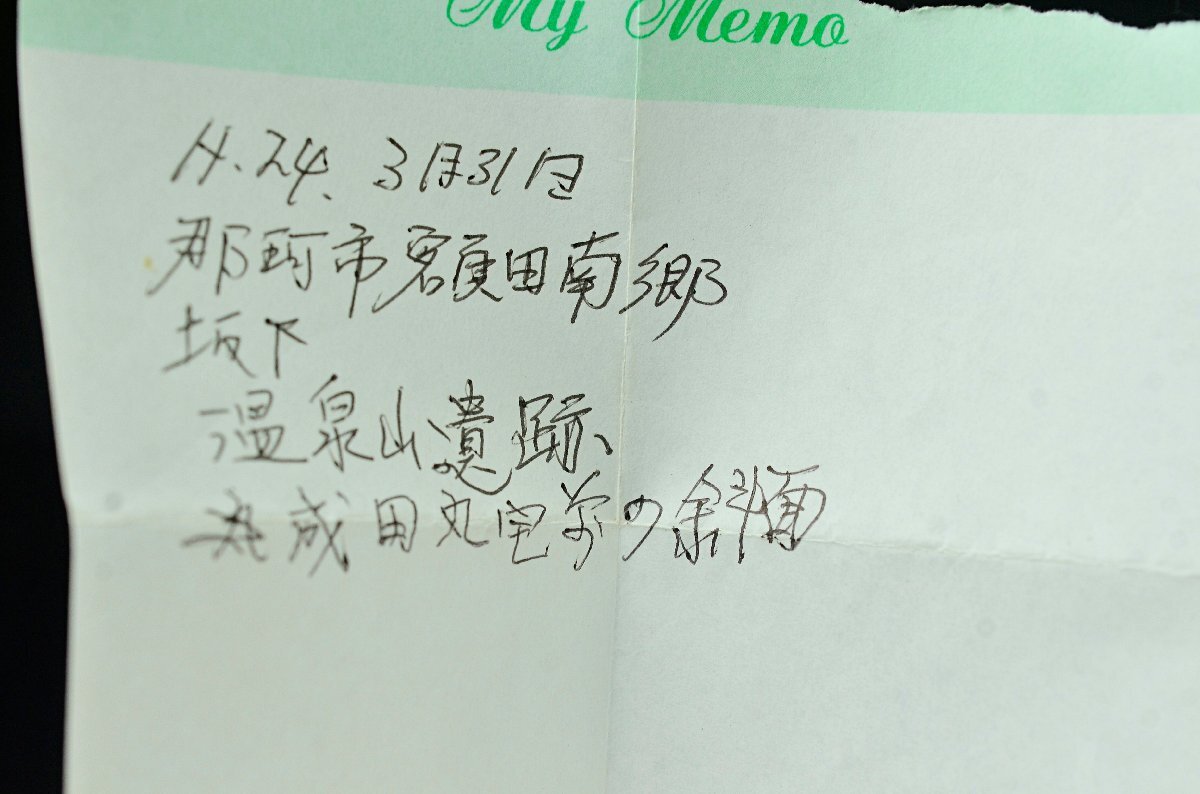 My Memo
H.24.3月31日
那珂市額田南郷
坂下
温泉山遺跡、
成田丸宅前の斜面